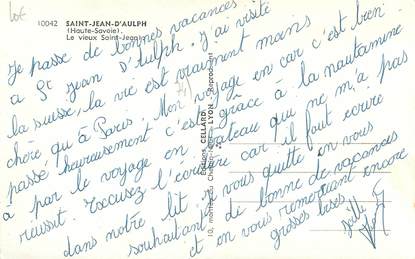 Lot
10042 SAINT-JEAN-D'AULPH
(Haute-Savoie)
Le vieux Saint-Jean
Je passe de bonnes vacances
a St Jean D'Aulph. J'ai visité
la suisse, la vie est vraiment moins
chère qu'à Paris. Mon voyage en car c'est bien
passé heureusement c'est grâce à la nautamine
car il faut écrire
dans notre lit, je vous quitte en vous
souhaitant de bonne de vacances
et en vous remerciant encore
grosses bises
Editions CELLARD
10, montée du Chemin LYON (Reproduction